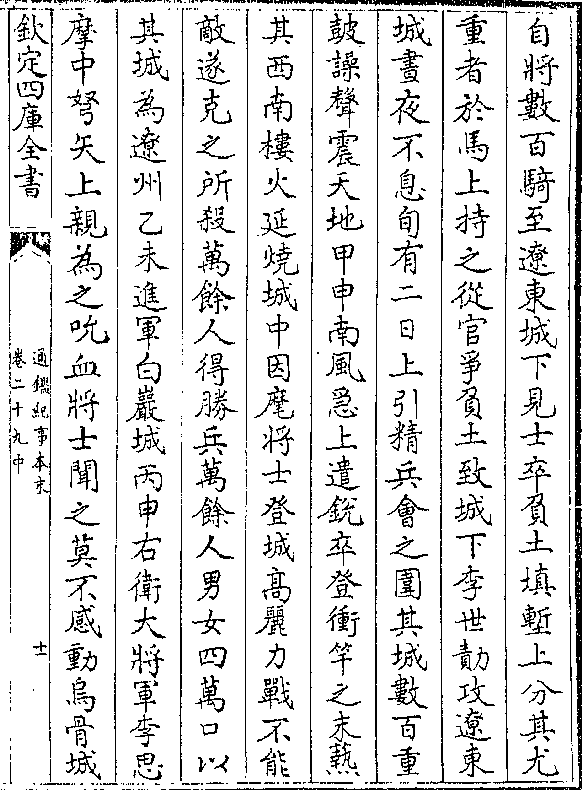 自將數百騎至遼東城下見士卒負土填塹上分其尤
重者於馬上持之從官爭負土致城下李世勣攻遼東
城晝夜不息旬有二日上引精兵會之圍其城數百重
鼓譟聲震天地甲申南風急上遣銳卒登衝竿之末爇
其西南樓火延燒城中因麾將士登城高麗力戰不能
敵遂克之所殺萬餘人得勝兵萬餘人男女四萬口以
其城為遼州乙未進軍白巖城丙申右衛大將軍李思
摩中弩矢上親為之吮血將士聞之莫不感動烏骨城
欽定四庫全書
通鑑紀事本末
卷二十九中
十一